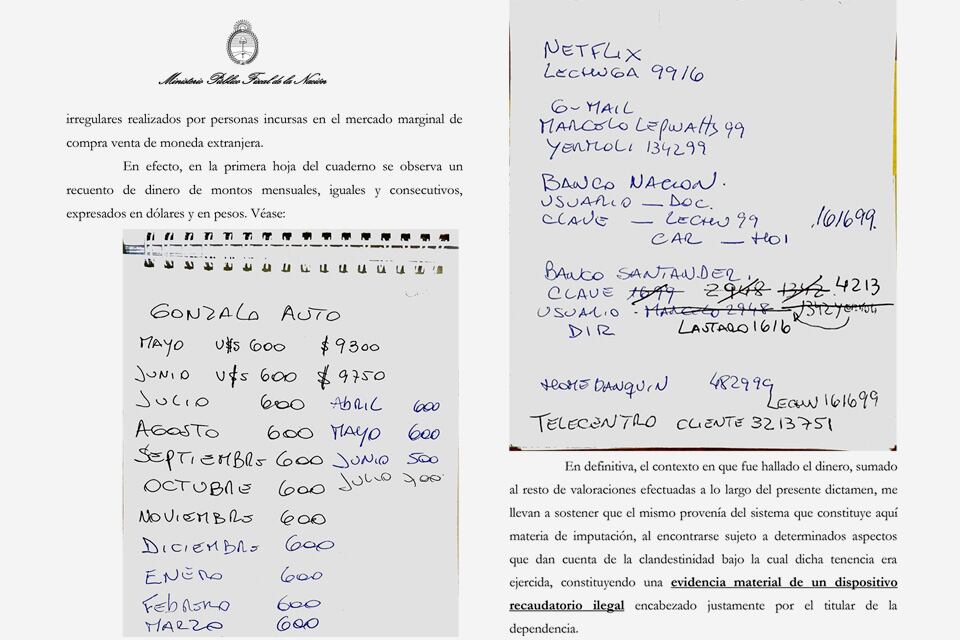 Ministerio Público Fiscal de la Nación
irregulares realizados por personas incursas en el mercado marginal de
compra venta de moneda extranjera.
En efecto, en la primera hoja del cuaderno se observa un
recuento de dinero de montos mensuales, iguales y consecutivos,
expresados en dólares y en pesos. Véase:
GONZALO AUTO
MAYO U$S 600 $ 9300
JUNIO U$S 600 $ 9750
JULIO 600 ABRIL 600
AGOSTO 600 MAYO 600
SEPTIEMBRE 600 JUNIO 500
OCTUBRE 600 JULIO
NOVIEMBRE 600
DICIEMBRE 600
ENERO 600
FEBRERO 600
MARZO 600
NETFLIX
LECHUGA 9916
G-MAIL
MARCELO LEPWATTS 99
YERMOLI 134299
BANCO NACION.
USUARIO — DOC.
CLAVE — LECHU 99 161699.
CAR — HOI
BANCO SANTANDER.
CLAVE 1699 2948 1342. 4213
USUARIO - MARCELO 2948
DIR LAUTARO 1616
HOMEBANQUIN 482999
LECHU 161699
TELECENTRO CLIENTE 3213751
En definitiva, el contexto en que fue hallado el dinero, sumado
al resto de valoraciones efectuadas a lo largo del presente dictamen, me
llevan a sostener que el mismo provenía del sistema que constituye aquí
materia de imputación, al encontrarse sujeto a determinados aspectos
que dan cuenta de la clandestinidad bajo la cual dicha tenencia era
ejercida, constituyendo una evidencia material de un dispositivo
recaudatorio ilegal encabezado justamente por el titular de la
dependencia.